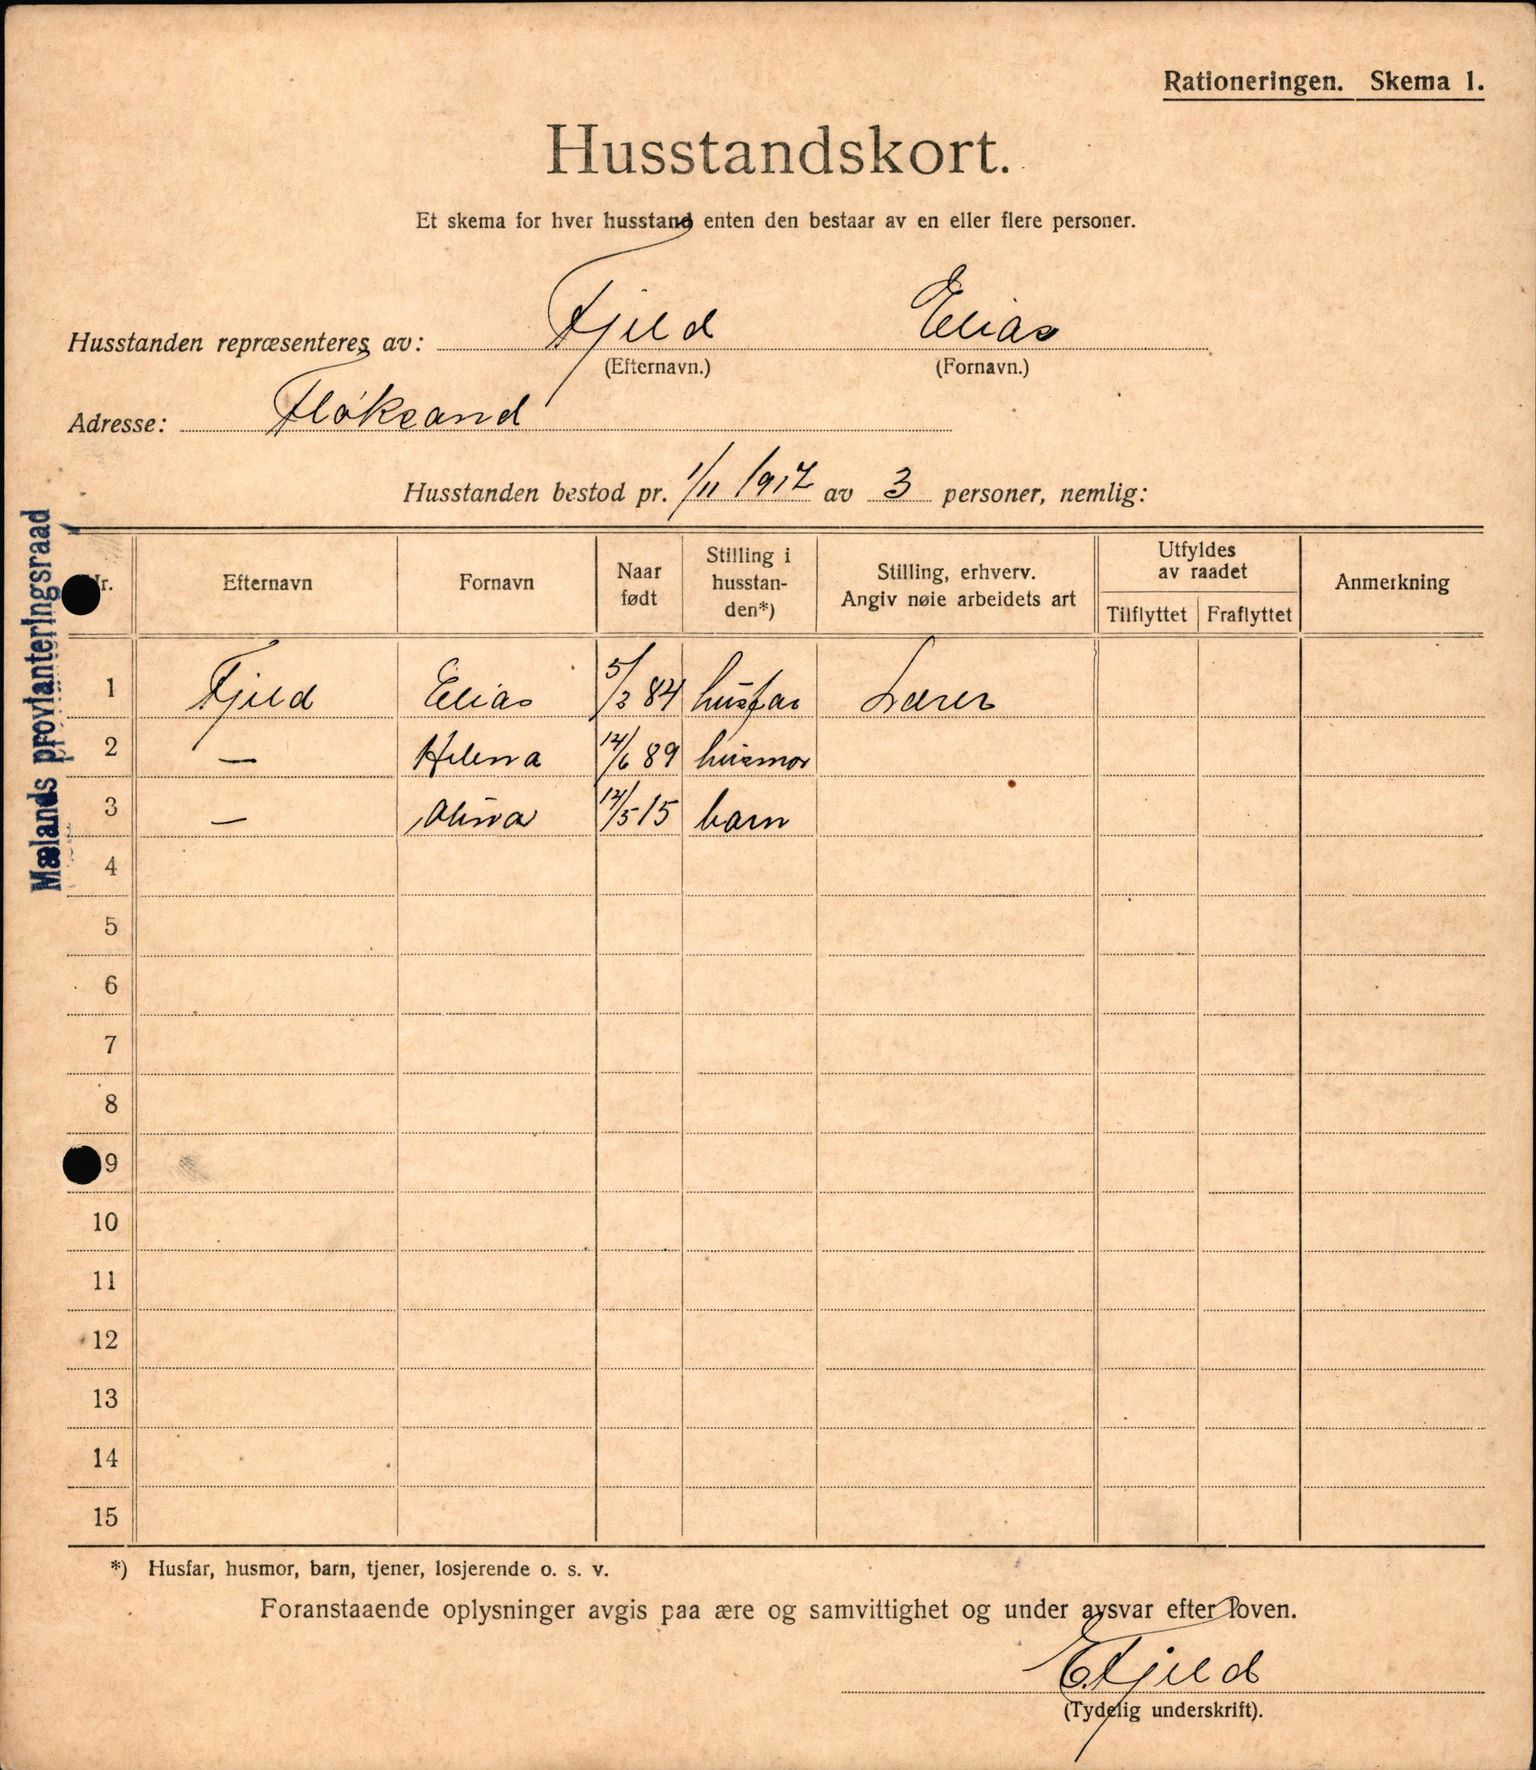 Rationeringen. Skema 1.
Husstandskort.
Et skema for hver husstand enten den bestaar av en eller flere personer.
Husstanden repræsenteres av: Fjeld Elias
(Efternavn.) (Fornavn.)
Adresse: Fløksand
Husstanden bestod pr. 1/11 1917 av 3 personer, nemlig:
Mælands provianteringsraad
Nr. Efternavn Fornavn Naar født Stilling i husstanden*) Stilling, erhverv. Angiv nøie arbeidets art Utfyldes av raadet Tilflyttet Fraflyttet Anmerkning
1 Fjeld Elias 5/3 84 husfar Lærer
2 — Helena 12/6 89 husmor
3 — 12/5 15 barn
4
5
6
7
8
9
10
11
12
13
14
15
*) Husfar, husmor, barn, tjener, losjerende o. s. v.
Foranstaaende oplysninger avgis paa ære og samvittighet og under avsvar efter loven.
E. Fjeld
(Tydelig underskrift).